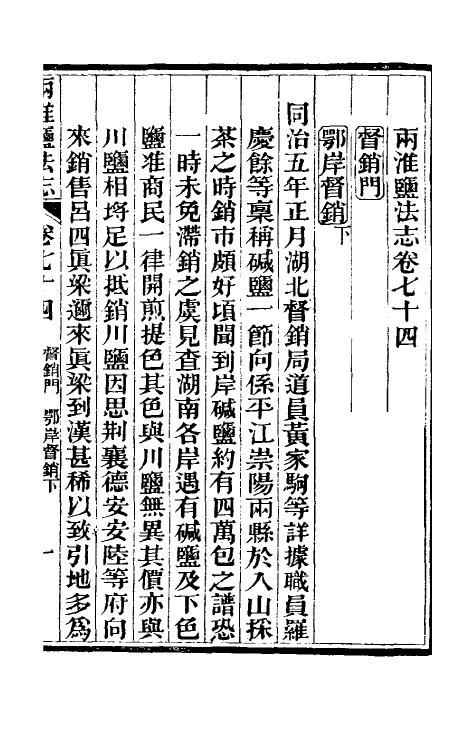 兩淮鹽法志卷七十四
督銷門
鄂岸督銷下
同治五年正月湖北督銷局道員黃家駒等詳據職員羅
慶餘等稟稱碱鹽一節向係平江崇陽兩縣於入山採
茶之時銷市頗好頃聞到岸碱鹽約有四萬包之譜恐
一時未免滯銷之虞見查湖南各岸遇有碱鹽及下色
鹽准商民一律開煎提色其色與川鹽無異其價亦與
川鹽相埒足以抵銷川鹽因思荆襄德安安陸等府向
來銷售呂四眞梁邇來眞梁到漢甚稀以致引地多爲
兩淮鹽法志 卷七十四 督銷門 鄂岸督銷下 一